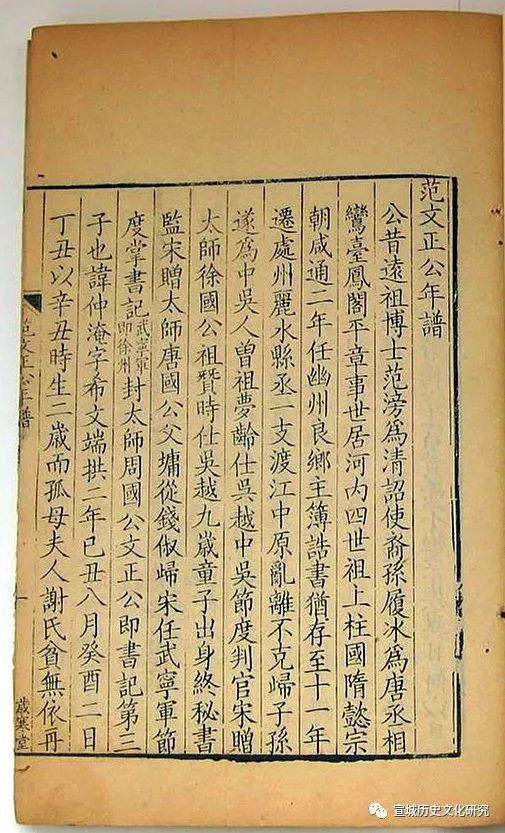 范文正公年譜
公昔遠祖博士范滂為清詔使裔孫履冰為唐丞相
鸞臺鳳閣平章事世居河內四世祖上柱國隋懿宗
朝咸通二年任幽州良鄉主簿誥書猶存至十一年
遷處州麗水縣丞一支渡江中原亂離不克歸子孫
遂為中吳人曾祖夢齡仕吳越中吳節度判官宋贈
太師徐國公祖贊時仕吳越九歲童子出身終秘書
監宋贈太師唐國公父墉從錢俶歸宋任武寧軍節
度掌書記武寧軍即徐州封太師周國公文正公即書記第三
子也諱仲淹字希文端拱二年己丑八月癸酉二日
丁丑以辛丑時生二歲而孤母夫人謝氏貧無依再
范文正公年譜
一
歲寒堂
宣城历史文化研究